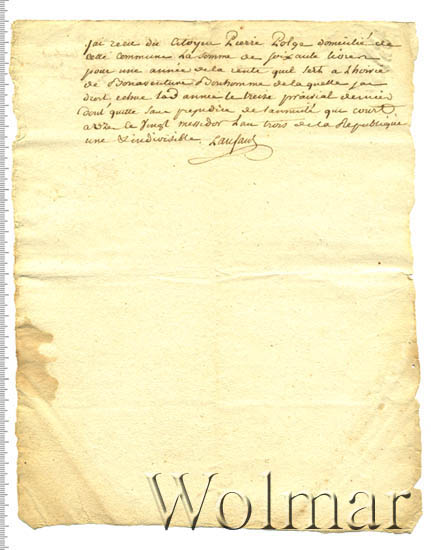 j'ai receu du Citoyen Pierre Polge domicilié de
cette Commune la somme de soixante livres
pour une année de la rente quil sert a Lhoirie
de Bonaventure Bonhomme de laquelle jai
droit echue lad année le treize prairial dernier
dont quitte sans prejudice de lannuité qui court
le vingt messidor lan trois de la Republique
une & indivisible.
Wolmar